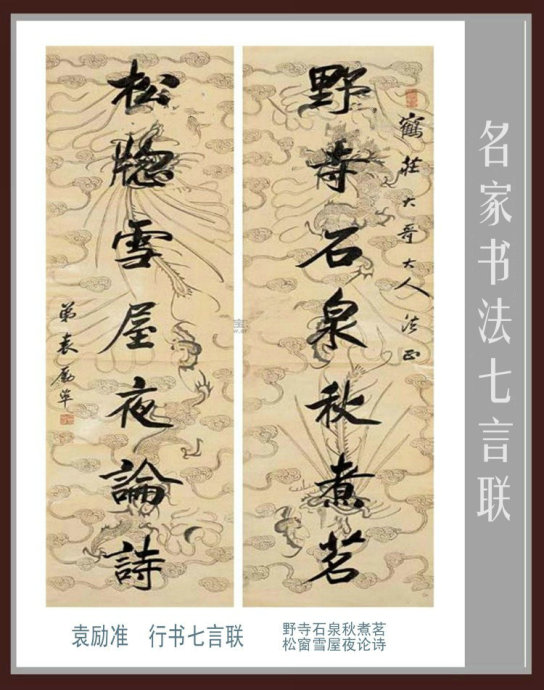 名家书法七言联
野寺石泉秋煮茗
鶴莊大哥大人法正
松牕雪屋夜論詩
弟袁勵準
袁励准 行书七言联
野寺石泉秋煮茗
松窗雪屋夜论诗